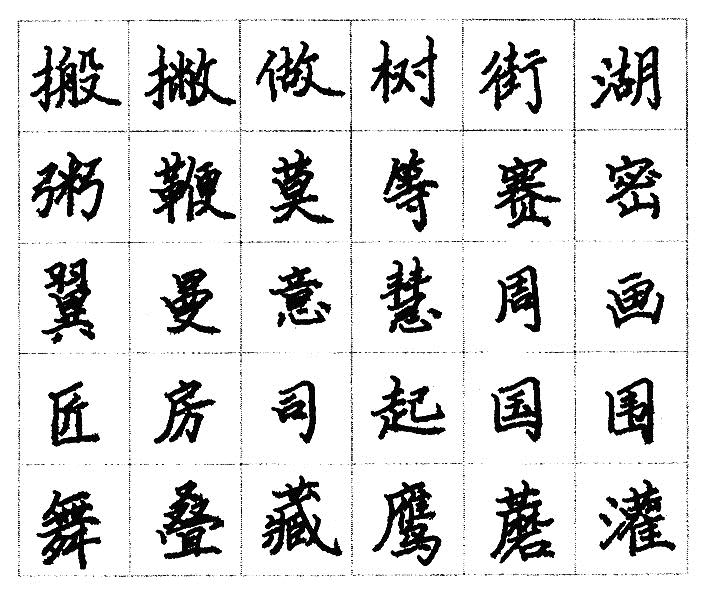 搬撇做树街湖
粥鞭莫等赛密
翼曼意慧周画
匠房司起国围
舞叠藏鹰蘑灌